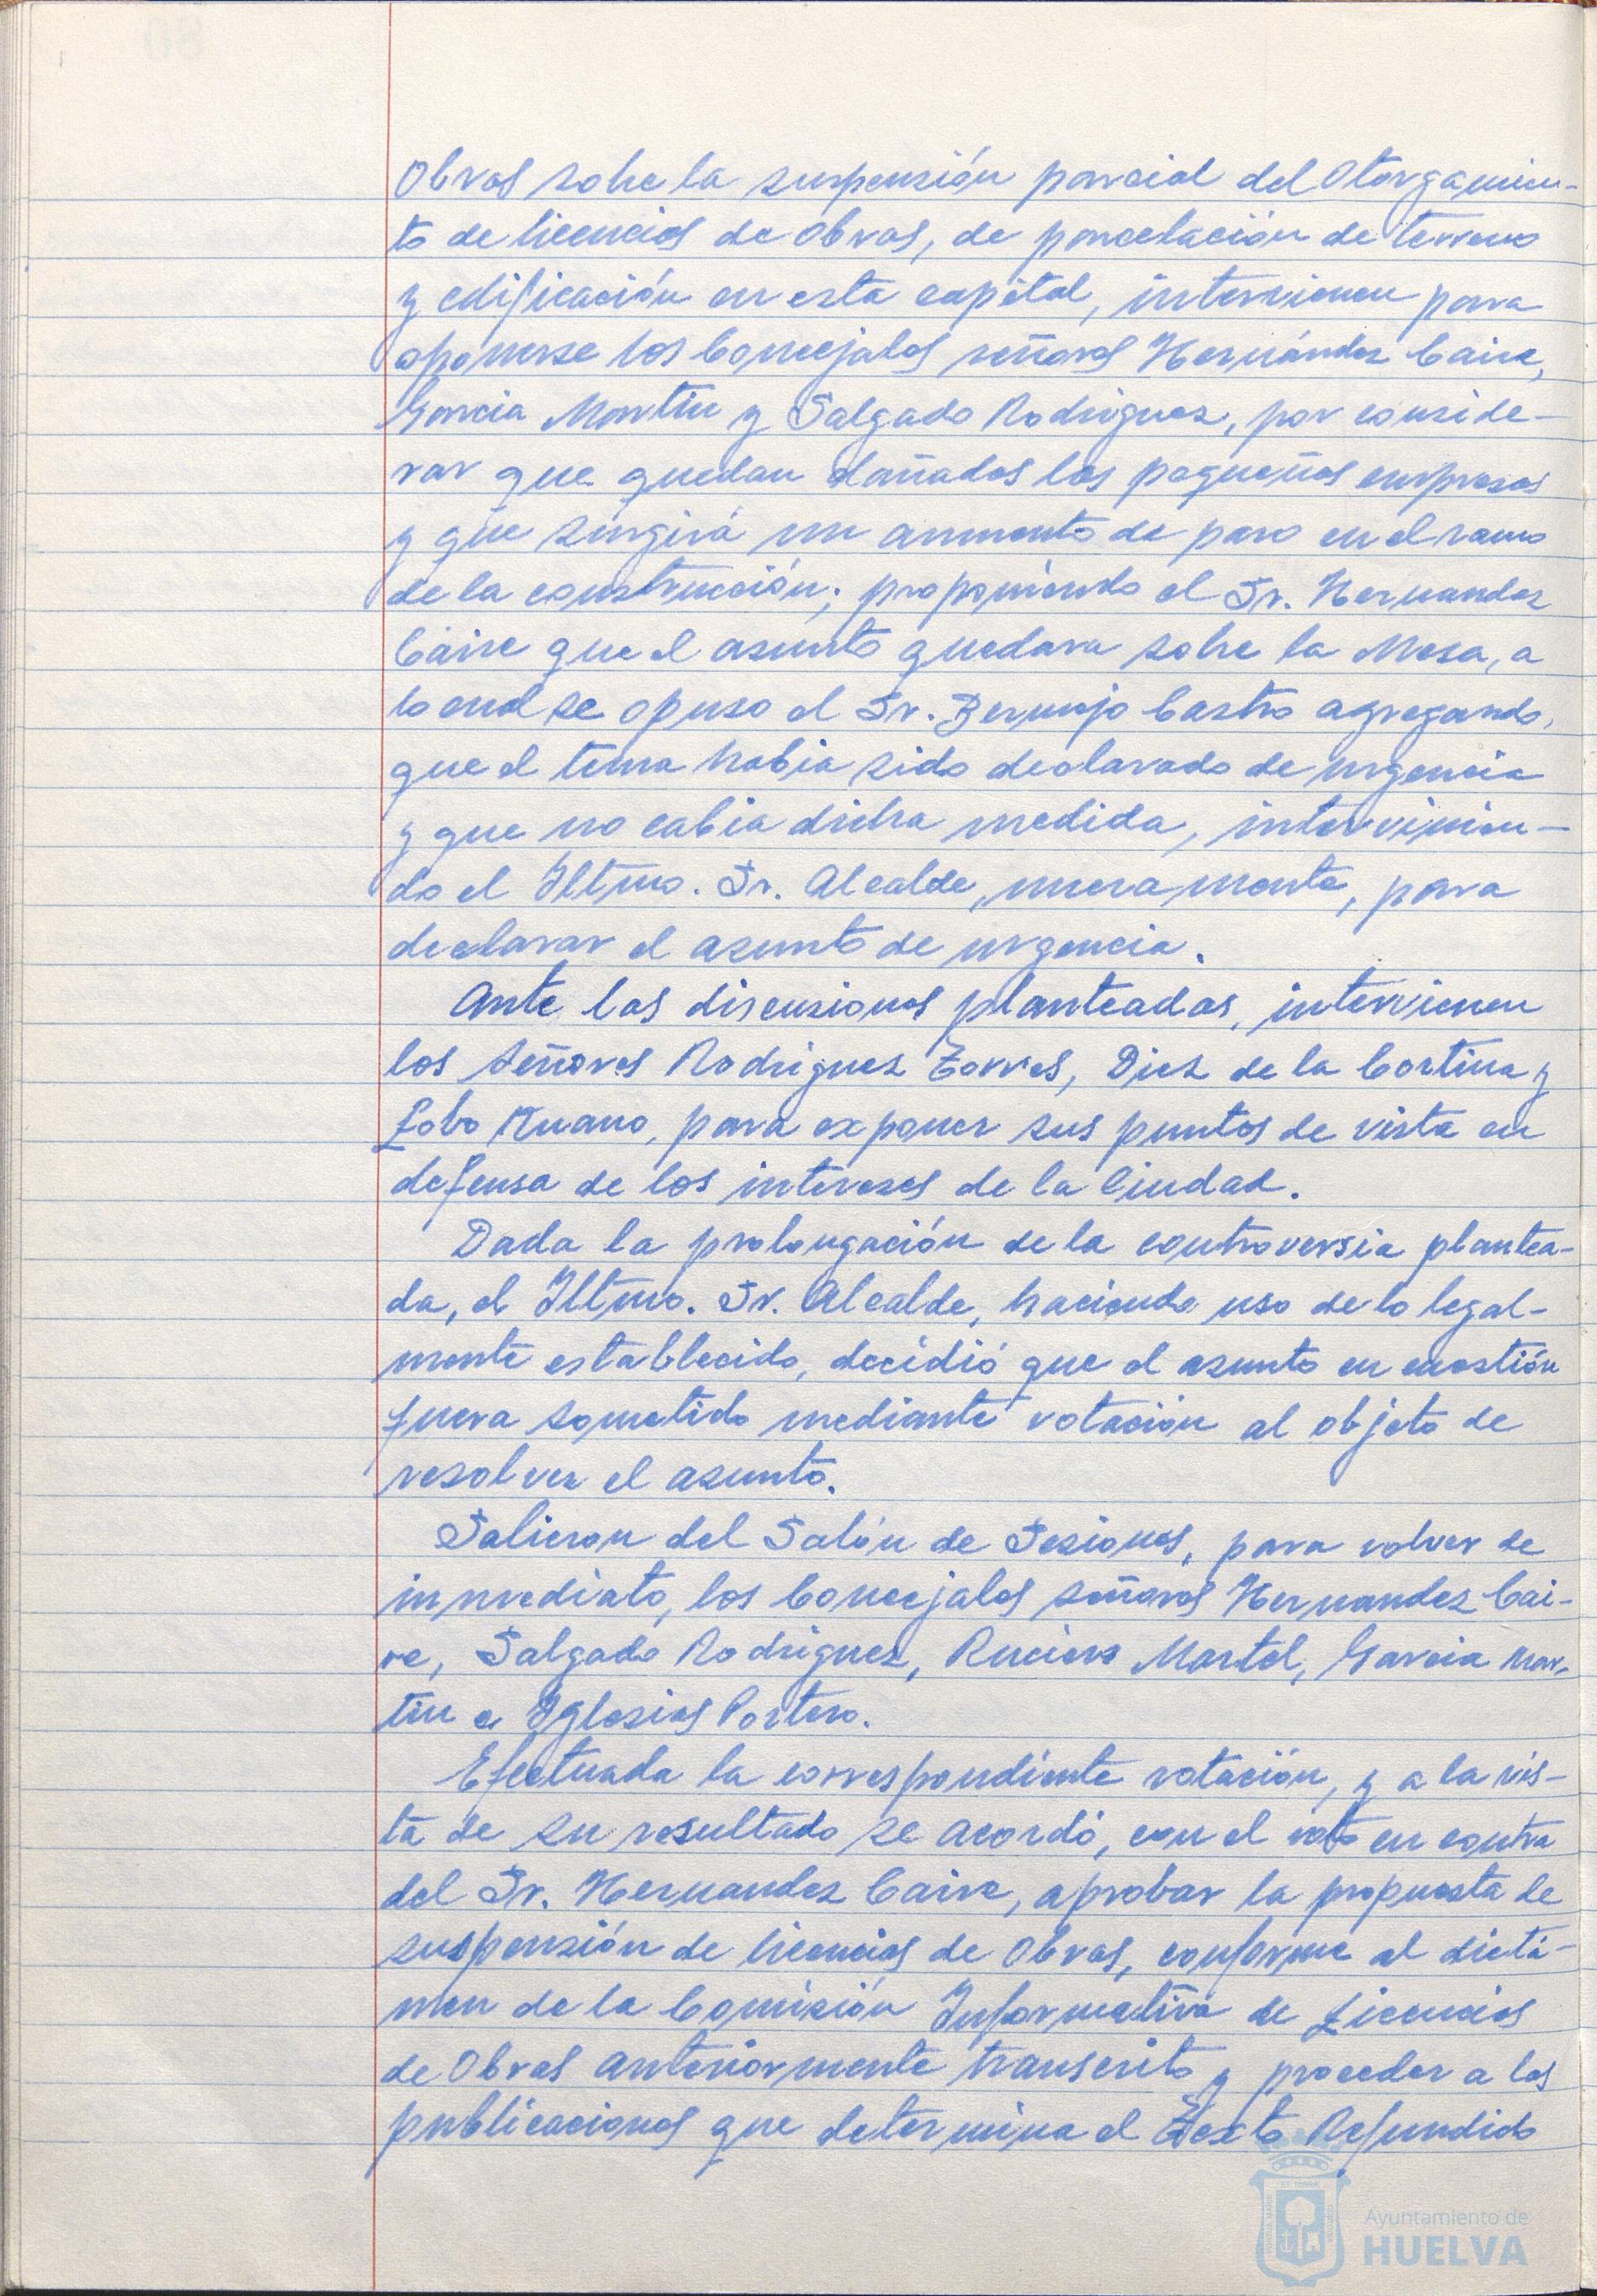 Obras sobre la suspensión parcial del Otorgamien-
to de licencias de Obras, de parcelación de terreno
y edificación en esta capital, intervienen para
oponerse los Concejales señores Hernández Caire,
Garcia Martin y Salgado Rodriguez, por conside-
rar que quedan dañados las pequeñas empresas
y que surgirá un aumento de paro en el ramo
de la construcción; proponiendo el Sr. Hernandez
Caire que el asunto quedara sobre la Mesa, a
lo cual se opuso el Sr. Bermejo Castro agregando,
que el tema habia sido declarado de urgencia
y que no cabia dicha medida, intervinien-
do el Iltmo. Sr. Alcalde, nuevamente, para
declarar el asunto de urgencia.
Ante las discusiones planteadas, intervienen
los Señores Rodriguez Torres, Diez de la Cortina y
Lobo Ruano, para exponer sus puntos de vista en
defensa de los intereses de la Ciudad.
Dada la prolongación de la controversia plantea-
da, el Iltmo. Sr. Alcalde, haciendo uso de lo legal-
mente establecido, decidió que el asunto en cuestión
fuera sometido mediante votación al objeto de
resolver el asunto.
Salieron del Salón de Sesiones, para volver de
inmediato, los Concejales señores Hernandez Cai-
re, Salgado Rodriguez, Ruciero Martel, Garcia Mar-
tin e Iglesias Portero.
Efectuada la correspondiente votación, y a la vis-
ta de su resultado se acordó, con el voto en contra
del Sr. Hernandez Caire, aprobar la propuesta de
suspensión de licencias de Obras, conforme al dictá-
men de la Comisión Informativa de Licencias
de Obras anteriormente transcrito y proceder a las
publicaciones que determina el Texto Refundido
Ayuntamiento de
HUELVA